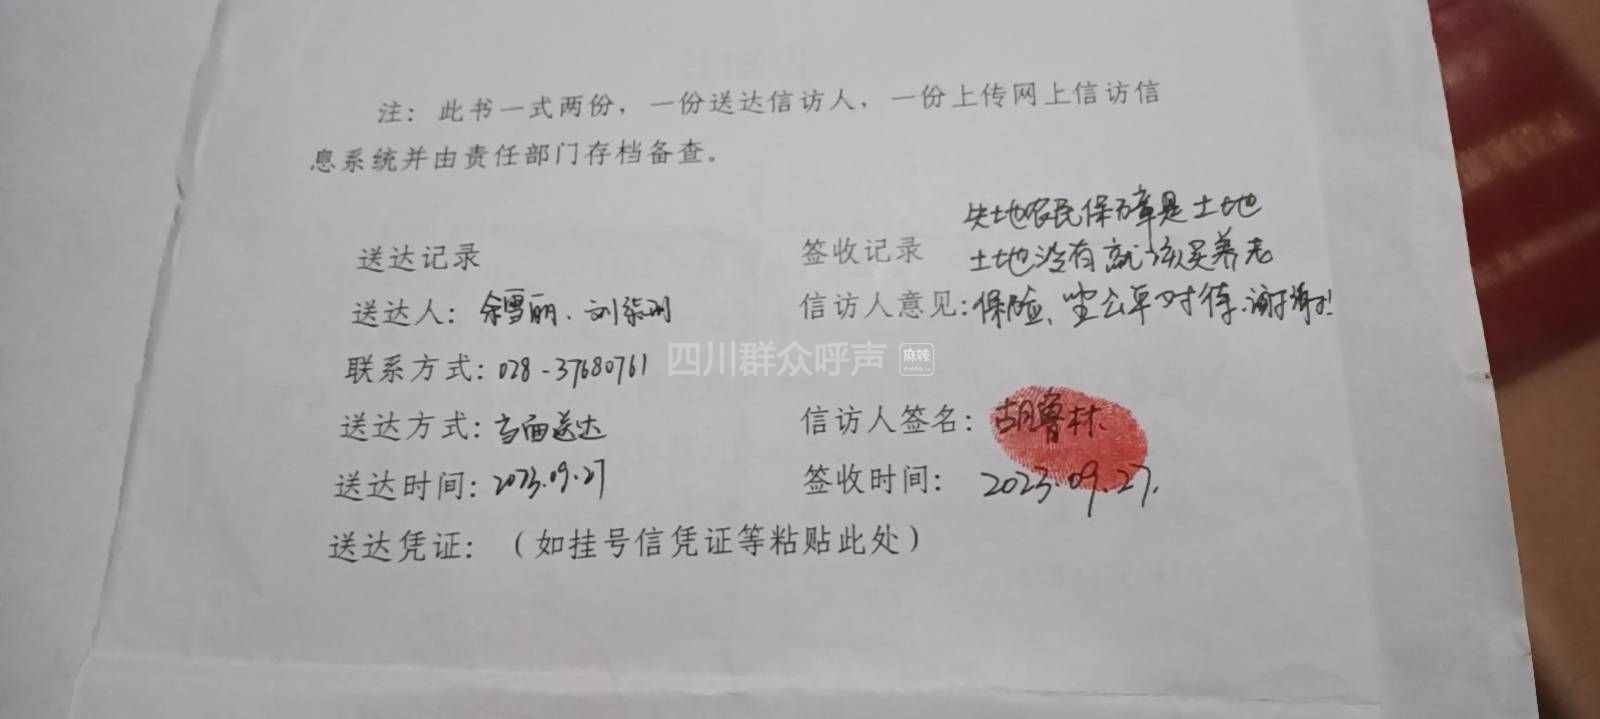 注：此书一式两份，一份送达信访人，一份上传网上信访信
息系统并由责任部门存档备查。
送达记录
送达人：余雪丽、刘
联系方式：028-37680761
送达方式：当面送达
送达时间：2023.09.27
送达凭证：（如挂号信凭证等粘贴此处）
签收记录
信访人意见：失地农民保障是土地
土地没有就该买养老
保险、望公平对待、谢谢！
信访人签名：胡鲁林
签收时间：2023.09.27.
四川群众呼声 麻辣